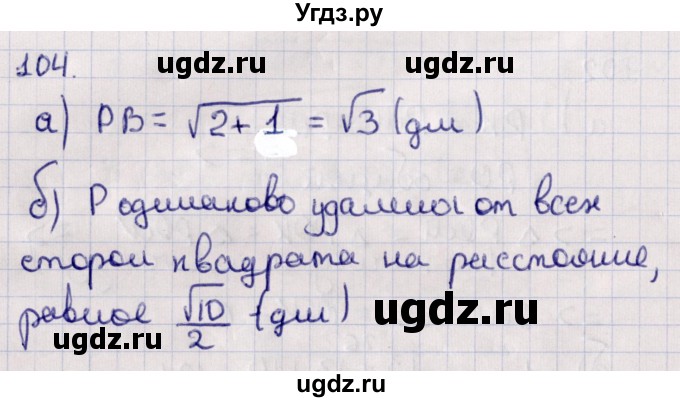 Угдз.ру
104.
ugdz.ru ugdz.ru
а) PB = √2+1 = √3 (дм)
б) P одинаково удалена от всех
сторон квадрата на расстояние,
равное √10/2 (дм)
ugdz.ru
ugdz.ru
ugdz.ru